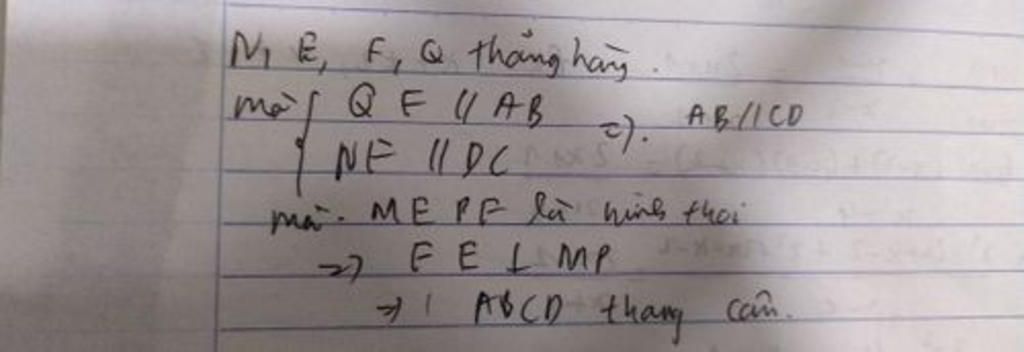 N, E, F, Q thẳng hàng.
mà { QF // AB => . AB // CD
NE // DC
mà . MEPF là hình thoi
=> FE ⊥ MP
=> ABCD thang cân.